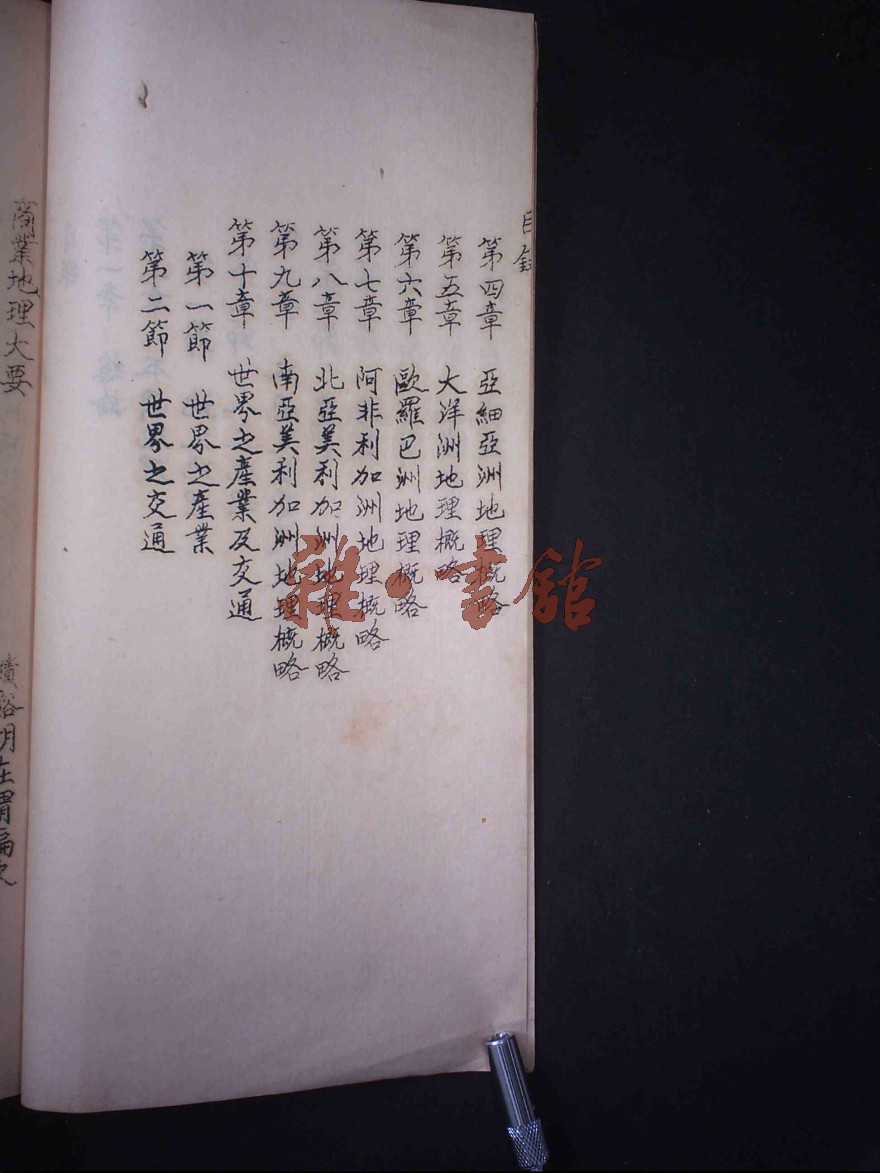 目錄
第四章 亞細亞洲地理概略
第五章 大洋洲地理概略
第六章 歐羅巴洲地理概略
第七章 阿非利加洲地理概略
第八章 北亞美利加洲地理概略
第九章 南亞美利加洲地理概略
第十章 世界之產業及交通
第一節 世界之產業
第二節 世界之交通
商業地理大要
雜·書館